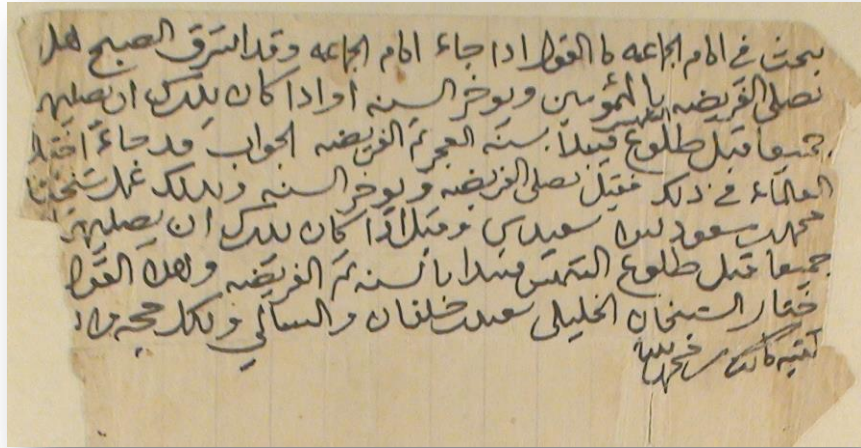 بحث في امام الجماعه ما القول اذا جاء امام الجماعه وقد اشرق الصبح هل
نصلى الفريضه بالمؤمنين ويوخر السنه او اذا كان يدرك ان يصليهما
جميعا قبل طلوع الشمس فيبدأ بسنه الفجر ثم الفريضه الجواب قد جاء
العلماء في ذلك فقيل نصلى الفريضه ويوخر السنه وبذلك عمل شيخنا
سعود وقيل اذا كان يدرك ان يصليهما
جميعا قبل طلوع الشمس فيبدا بالسنه ثم الفريضه وهذا القول
ختار الشيخان الخليلى سعيد بن خلفان والسالمي ولكل حجه
كتبه